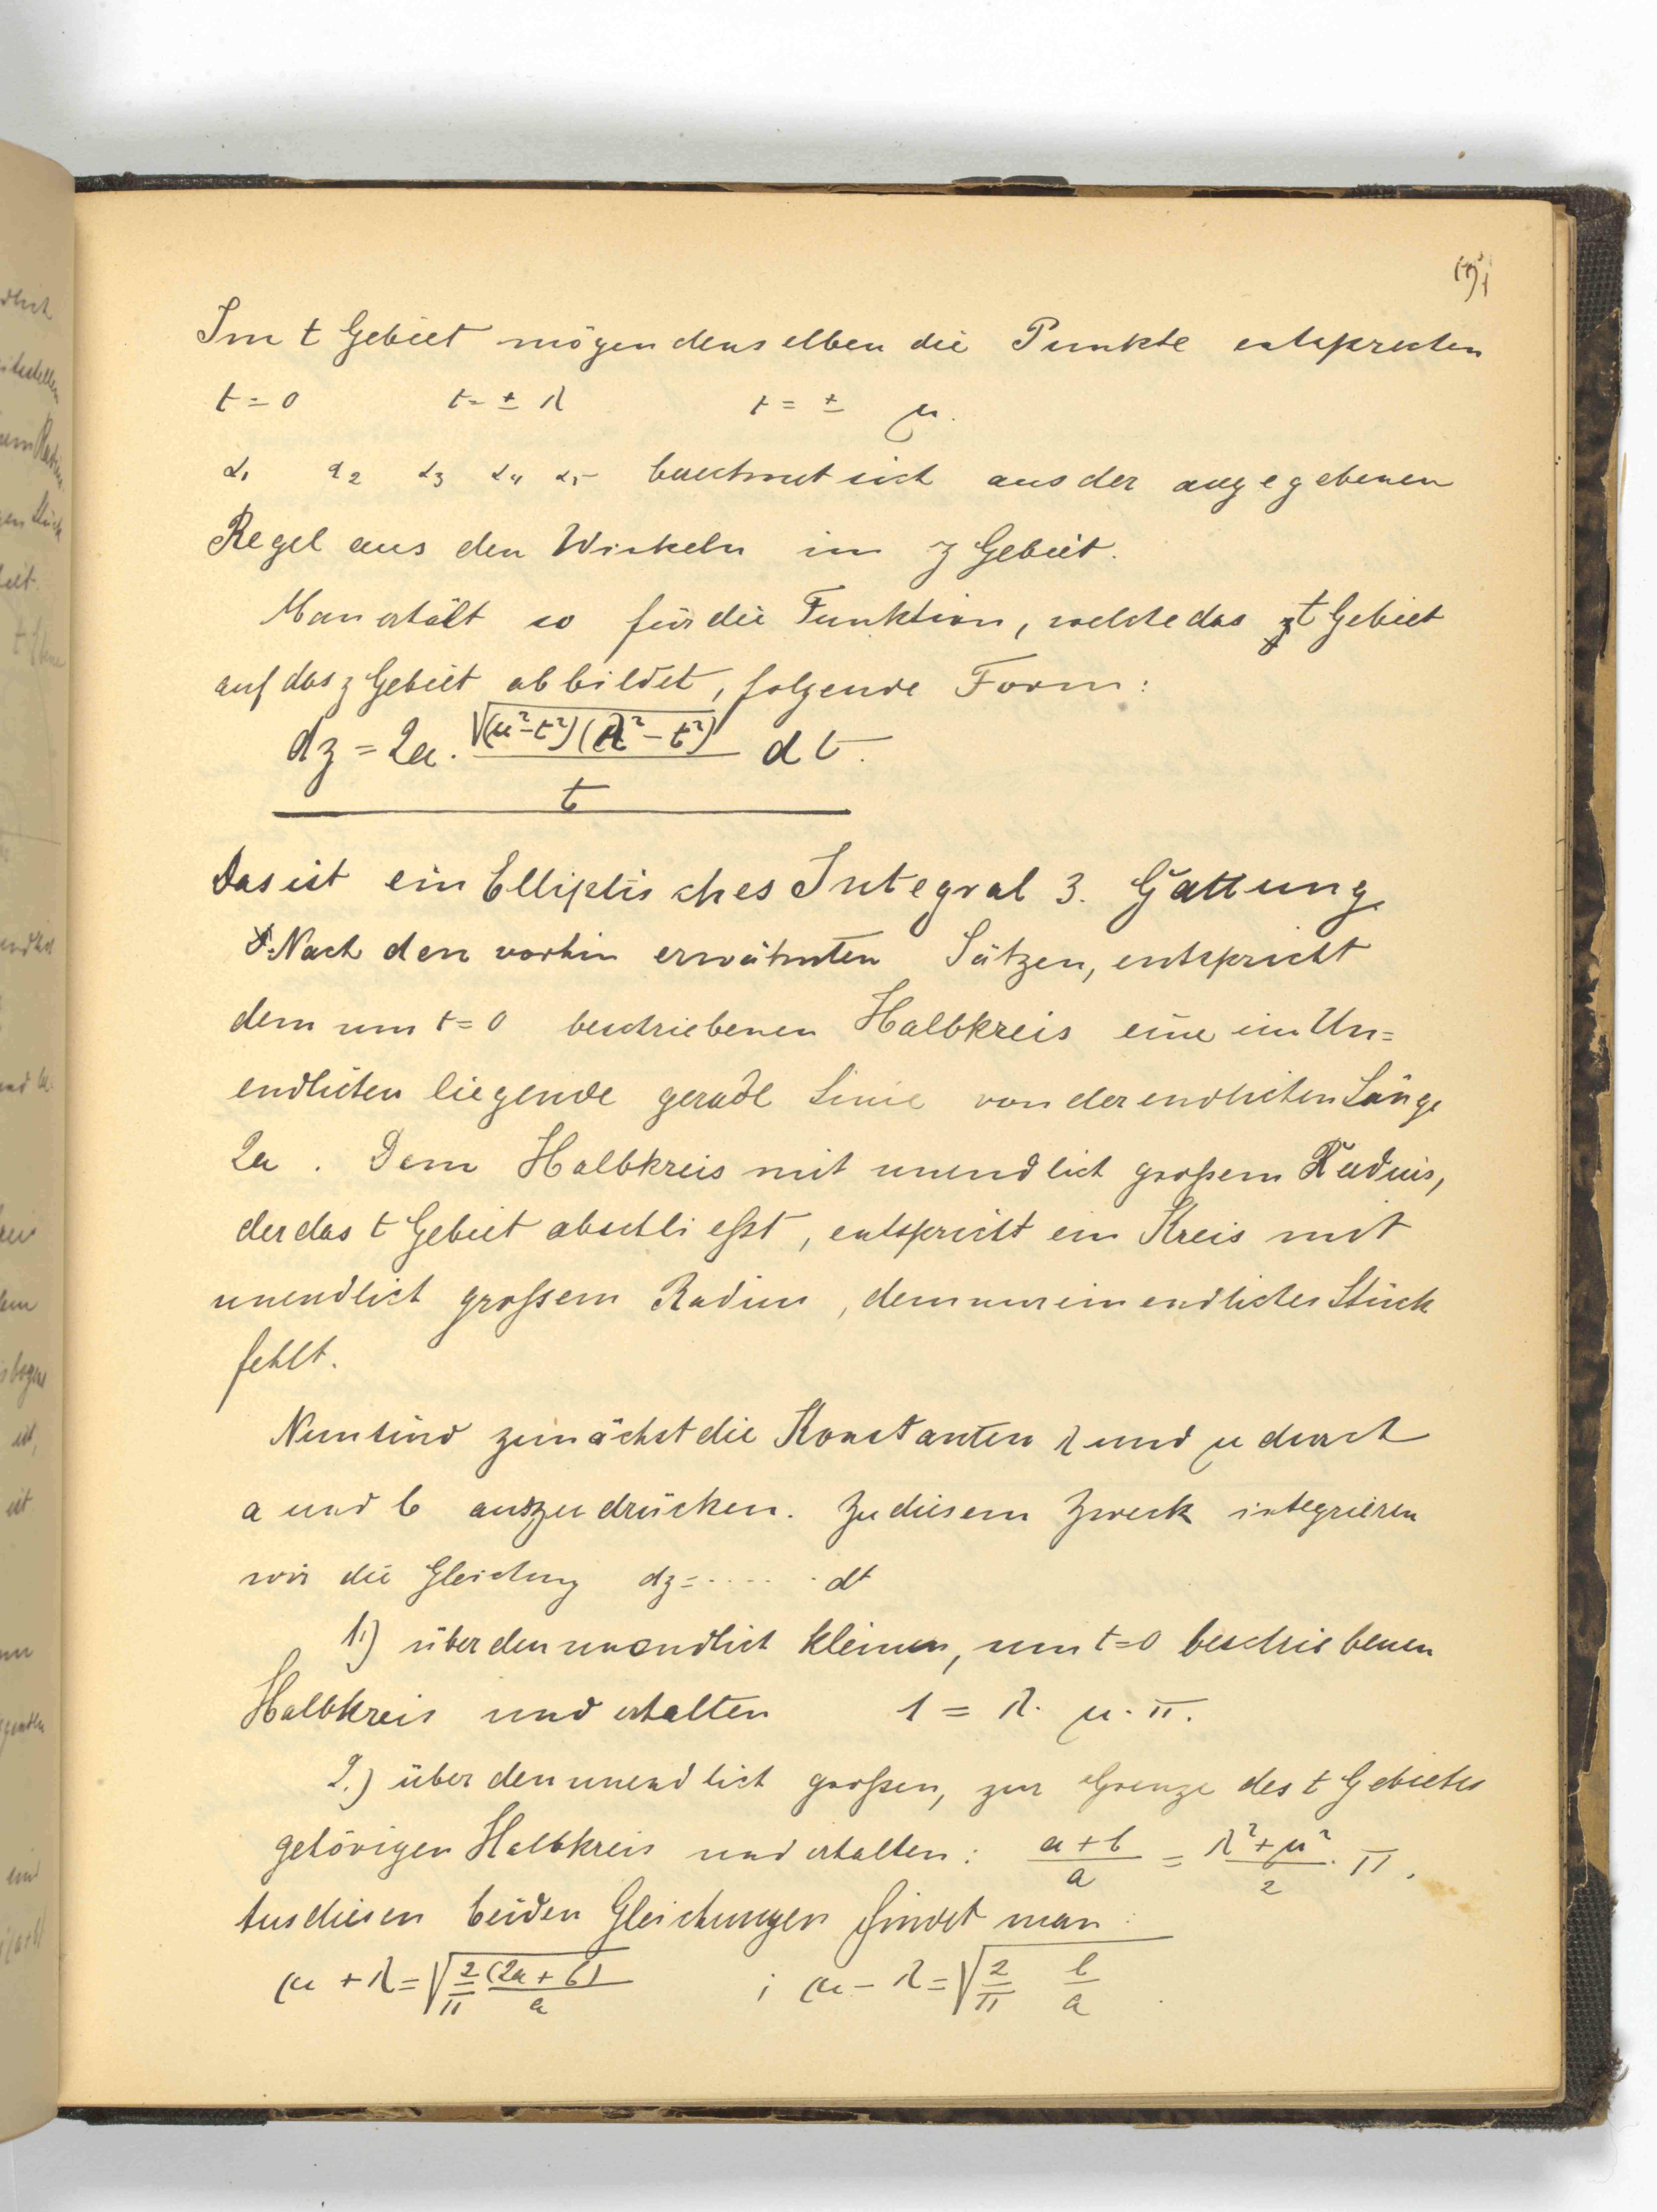 Im t Gebiet mögen denselben die Punkte entsprechen
t = 0 t = ± λ t = ± μ.
α₁ α₂ α₃ α₄ α₅ berechnet sich aus der angegebenen
Regel aus den Winkeln im z Gebiet.
Man erhält so für die Funktion, welche das t Gebiet
auf das z Gebiet abbildet, folgende Form:
dz = 2a · √((μ²-t²)(λ²-t²)) / t dt.
Das ist ein Elliptisches Integral 3. Gattung.
Nach den vorhin erwähnten Sätzen, entspricht
dem um t=0 beschriebenen Halbkreis eine im Un=
endlichen liegende gerade Linie von der endlichen Länge
2a. Dem Halbkreis mit unendlich großem Radius,
der das t Gebiet abschließt, entspricht ein Kreis mit
unendlich großem Radius, dem nur ein endliches Stück
fehlt.
Nun sind zunächst die Konstanten λ und μ durch
a und b auszudrücken. Zu diesem Zweck integrieren
wir die Gleichung dz=······dt
1.) über den unendlich kleinen, um t=0 beschriebenen
Halbkreis und erhalten 1 = λ · μ · π.
2.) über den unendlich großen, zur Grenze des t Gebietes
gehörigen Halbkreis und erhalten: (a+b)/a = (λ²+μ²)/2 · π.
Aus diesen beiden Gleichungen findet man:
μ + λ = √(2/π (2a+b)/a) ; μ - λ = √(2/π b/a).